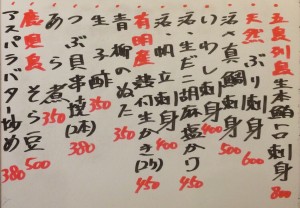 五島列島生本鮪一口刺身 800
天然ぶり刺身 600
活〆真鯛刺身 500
いわし刺身 400
活〆生だこ胡麻塩かり 450
活〆帆立刺身 400
有明産殻付生かき(2ヶ) 450
青柳のぬた 350
生子酢 350
つぶ貝串焼(2本) 380
あら煮 350
鹿児島そら豆 500
アスパラバター炒め 380